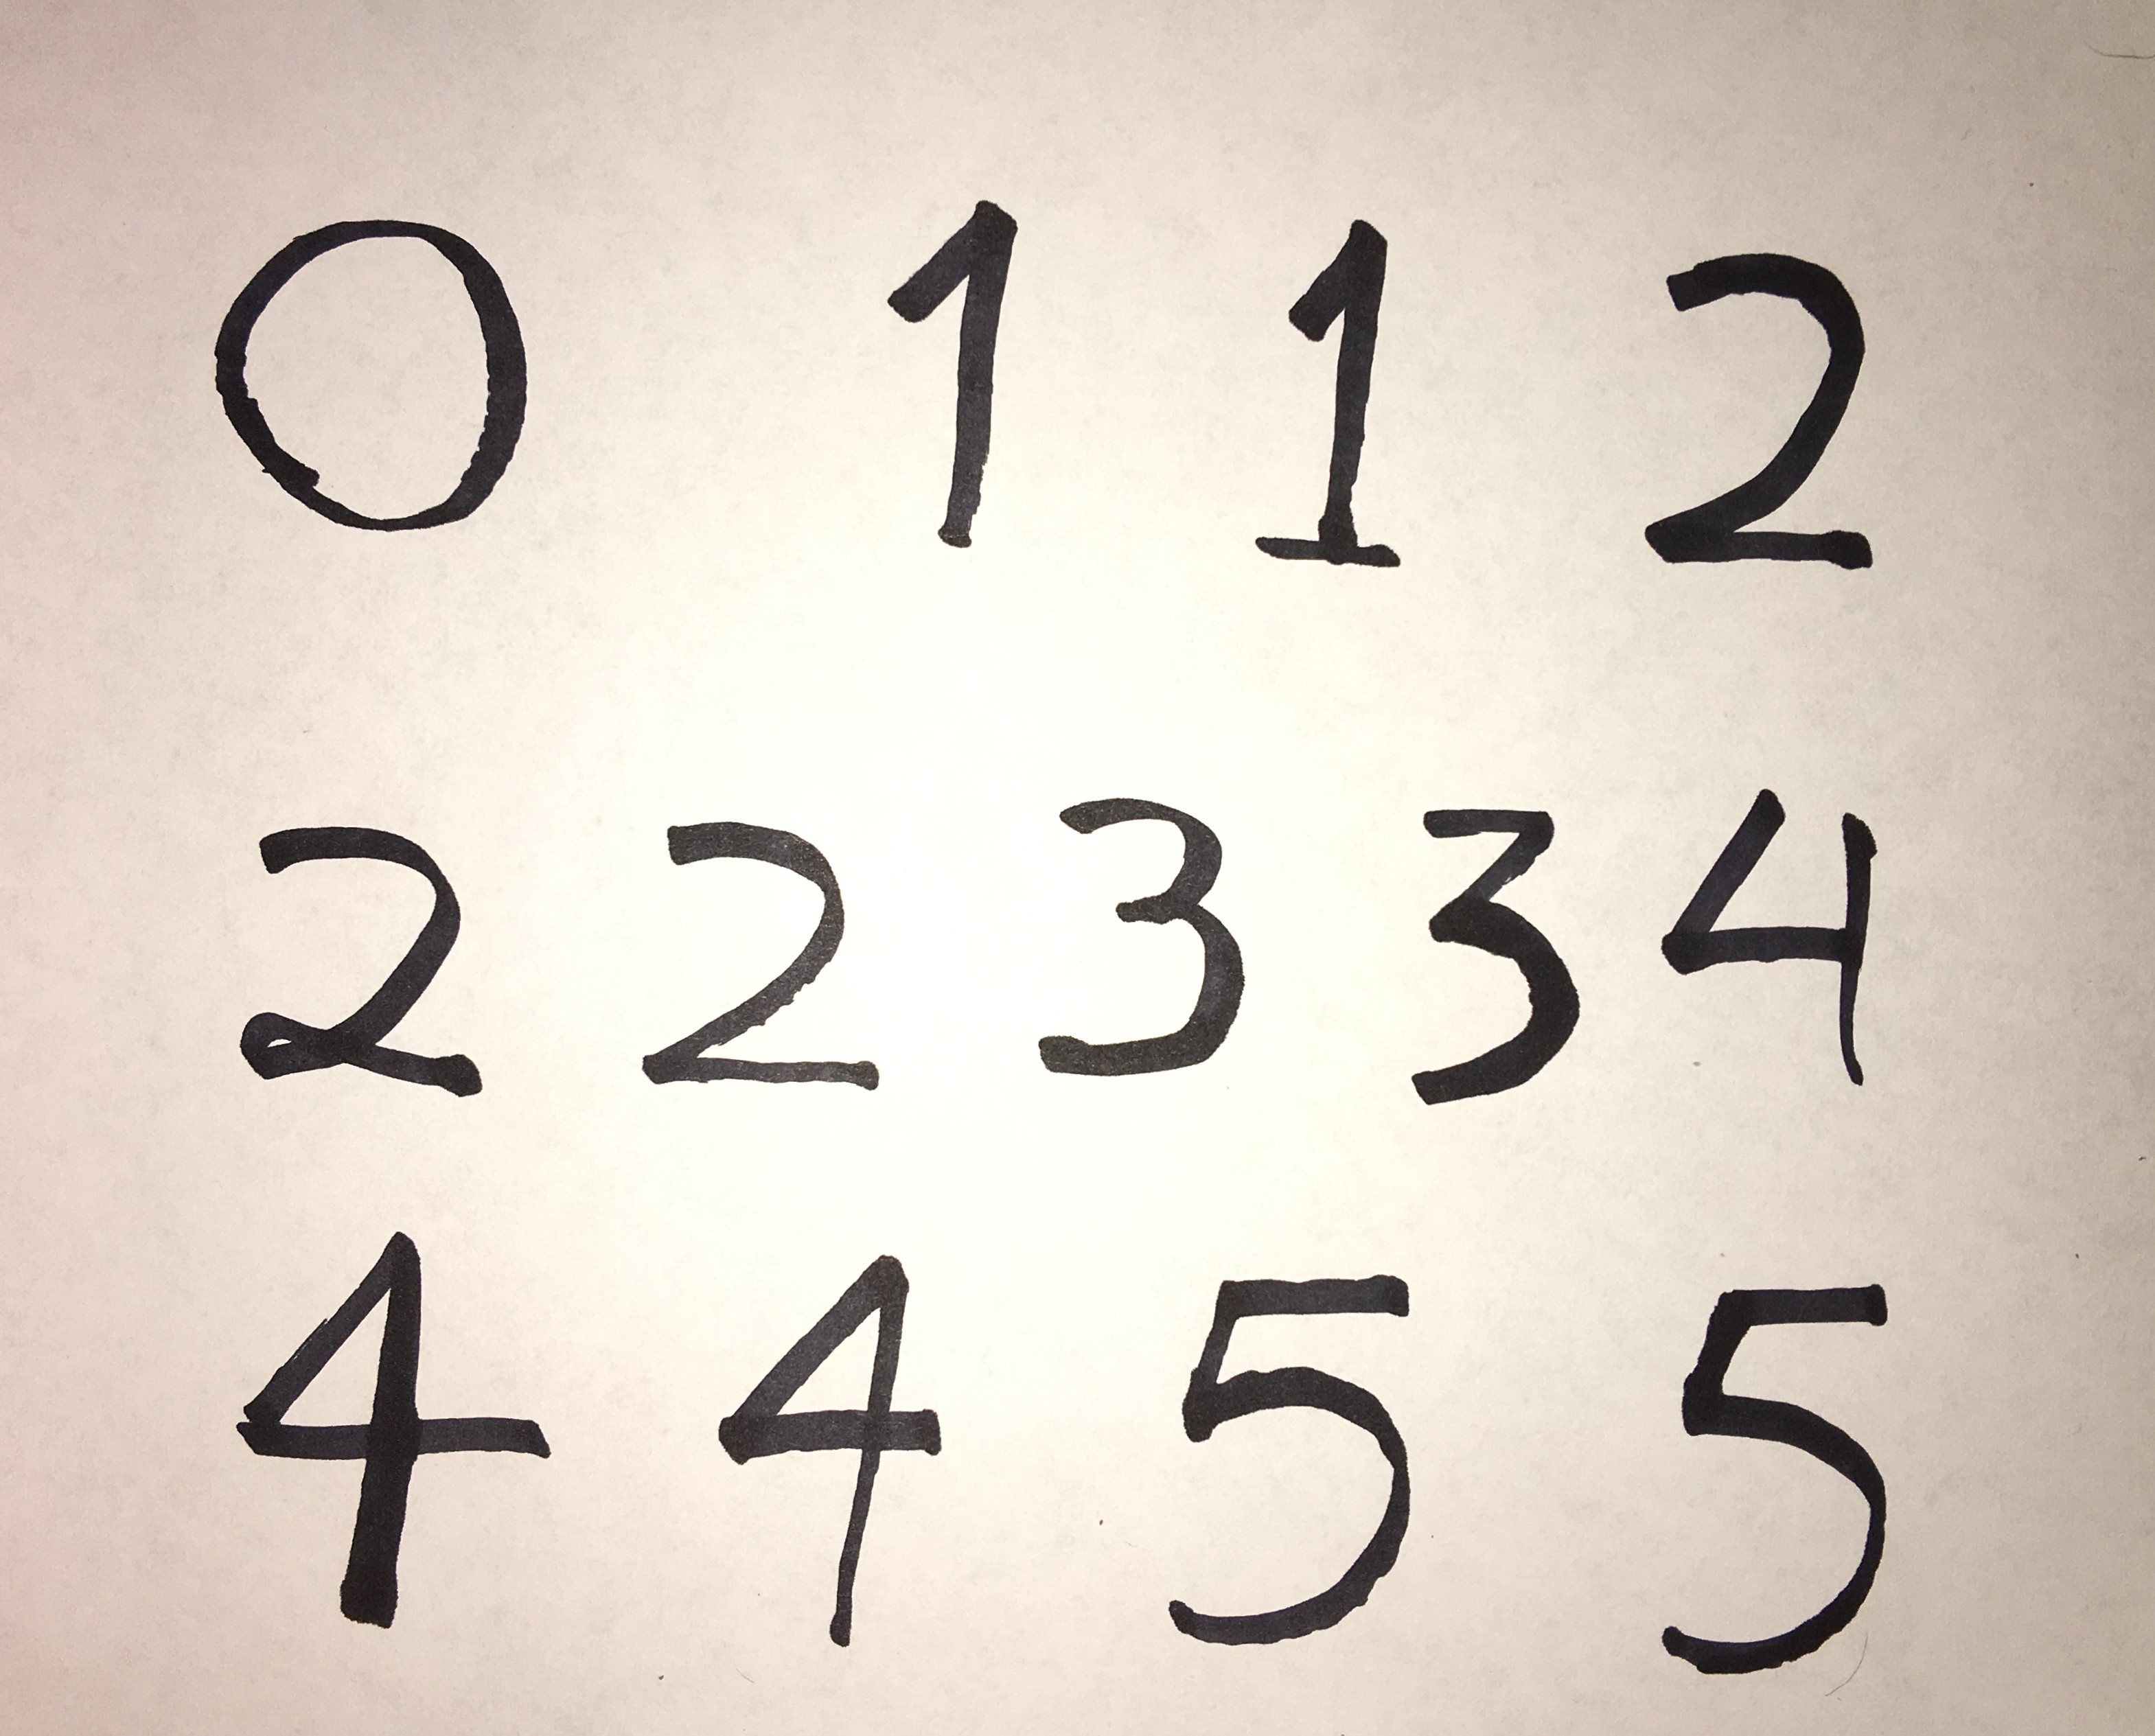 0 1 1 2
2 2 3 3 4
4 4 5 5